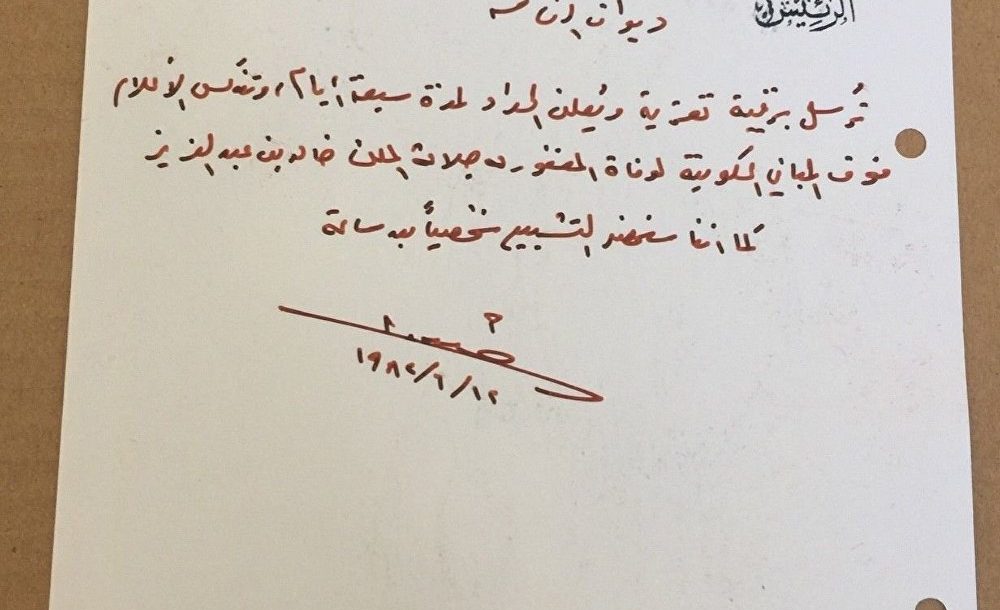 الرئيس
ديوان الرئاسة
تُرسل برقية تعزية ويُعلن الحداد لمدة سبعة أيام، وتنكس الأعلام
فوق المباني الحكومية لوفاة المغفور له جلالة الملك خالد بن عبد العزيز
كما اننا سنحضر التشييع شخصياً بعد ساعة
١٩٨٢/٦/١٢